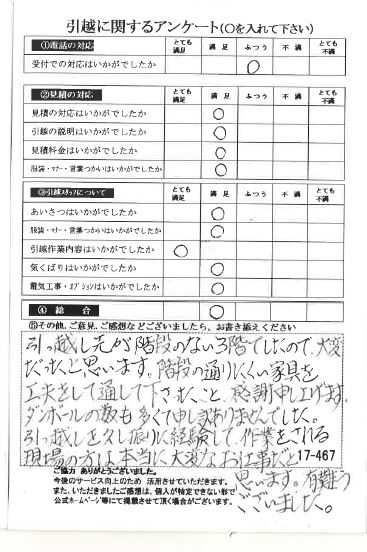 引越に関するアンケート(○を入れて下さい)
①電話の対応 とても満足 満足 ふつう 不満 とても不満
受付での対応はいかがでしたか ○
②見積の対応 とても満足 満足 ふつう 不満 とても不満
見積の対応はいかがでしたか ○
引越の説明はいかがでしたか ○
見積料金はいかがでしたか ○
服装・マナー・言葉づかいはいかがでしたか ○
③引越スタッフについて とても満足 満足 ふつう 不満 とても不満
あいさつはいかがでしたか ○
服装・マナー・言葉づかいはいかがでしたか ○
引越作業内容はいかがでしたか ○
気くばりはいかがでしたか ○
電気工事・オプションはいかがでしたか ○
④総合 ○
⑤その他、ご意見、ご感想などございましたら、お書き添えください
引っ越し先が階段のない3階でしたので、大変
だったと思います。階段の通りにくい家具を
工夫をして通して下さったこと、感謝申し上げます。
ダンボールの数も多くて申し訳ありませんでした。
引っ越しを久し振りに経験して、作業をされる
現場の方は本当に大変なお仕事だと
思います。有難う
ございました。
17-467
ご協力 ありがとうございました。
今後のサービス向上のため 活用させていただきます。
また、いただきましたご感想は、個人が特定できない形で
公式ホームページ等にて掲載させて頂く場合がございます。